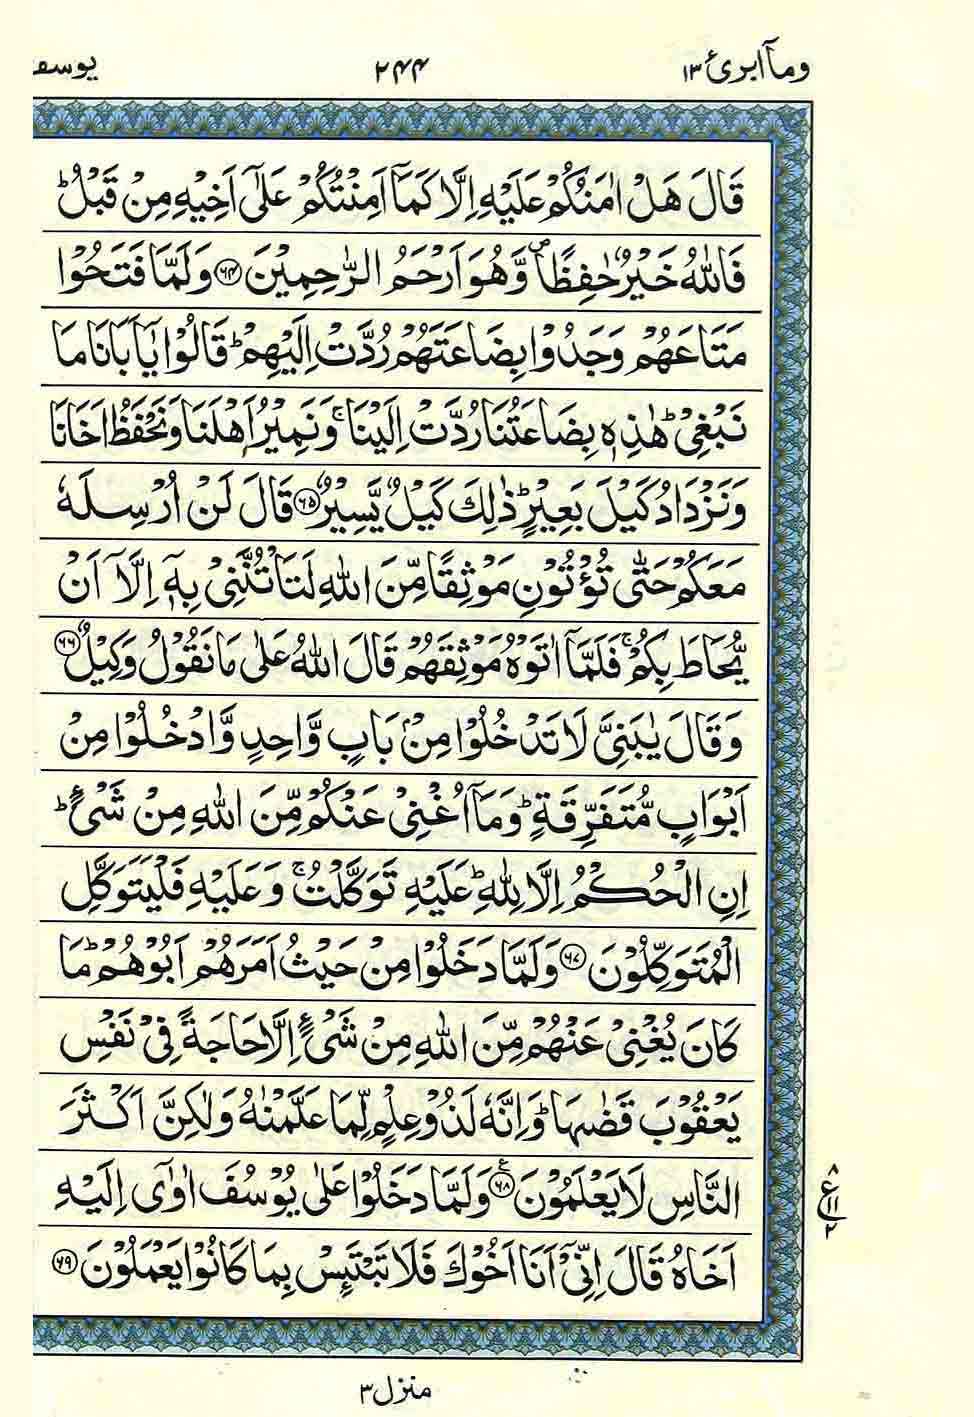 وماۤ ابرئ ١٣
٢٤٤
يوسف
قَالَ هَلْ اٰمَنُكُمْ عَلَيْهِ اِلَّا كَمَاۤ اَمِنْتُكُمْ عَلٰۤى اَخِيْهِ مِنْ قَبْلُ ؕ
فَاللّٰهُ خَيْرٌ حٰفِظًا ۪ وَّهُوَ اَرْحَمُ الرّٰحِمِيْنَ ﴿۶۴﴾ وَلَمَّا فَتَحُوْا
مَتَاعَهُمْ وَجَدُوْا بِضَاعَتَهُمْ رُدَّتْ اِلَيْهِمْ ؕ قَالُوْا يٰۤاَبَانَا مَا
نَبْغِيْ ؕ هٰذِهٖ بِضَاعَتُنَا رُدَّتْ اِلَيْنَا ۚ وَنَمِيْرُ اَهْلَنَا وَنَحْفَظُ اَخَانَا
وَنَزْدَادُ كَيْلَ بَعِيْرٍ ؕ ذٰلِكَ كَيْلٌ يَّسِيْرٌ ﴿۶۵﴾ قَالَ لَنْ اُرْسِلَهٗ
مَعَكُمْ حَتّٰى تُؤْتُوْنِ مَوْثِقًا مِّنَ اللّٰهِ لَتَاْتُنَّنِيْ بِهٖۤ اِلَّاۤ اَنْ
يُّحَاطَ بِكُمْ ۚ فَلَمَّاۤ اٰتَوْهُ مَوْثِقَهُمْ قَالَ اللّٰهُ عَلٰى مَا نَقُوْلُ وَكِيْلٌ ﴿۶۶﴾
وَقَالَ يٰبَنِيَّ لَا تَدْخُلُوْا مِنْۢ بَابٍ وَّاحِدٍ وَّادْخُلُوْا مِنْ
اَبْوَابٍ مُّتَفَرِّقَةٍ ؕ وَمَاۤ اُغْنِيْ عَنْكُمْ مِّنَ اللّٰهِ مِنْ شَيْءٍ ؕ
اِنِ الْحُكْمُ اِلَّا لِلّٰهِ ؕ عَلَيْهِ تَوَكَّلْتُ ۚ وَعَلَيْهِ فَلْيَتَوَكَّلِ
الْمُتَوَكِّلُوْنَ ﴿۶۷﴾ وَلَمَّا دَخَلُوْا مِنْ حَيْثُ اَمَرَهُمْ اَبُوْهُمْ ؕ مَا
كَانَ يُغْنِيْ عَنْهُمْ مِّنَ اللّٰهِ مِنْ شَيْءٍ اِلَّا حَاجَةً فِيْ نَفْسِ
يَعْقُوْبَ قَضٰىهَا ؕ وَاِنَّهٗ لَذُوْ عِلْمٍ لِّمَا عَلَّمْنٰهُ وَلٰكِنَّ اَكْثَرَ
النَّاسِ لَا يَعْلَمُوْنَ ﴿۶۸﴾ وَلَمَّا دَخَلُوْا عَلٰى يُوْسُفَ اٰوٰۤى اِلَيْهِ
اَخَاهُ قَالَ اِنِّيْۤ اَنَا اَخُوْكَ فَلَا تَبْتَئِسْ بِمَا كَانُوْا يَعْمَلُوْنَ ﴿۶۹﴾
٨
ع ١١
٢
منزل ٣